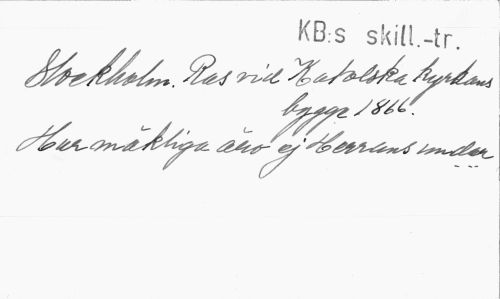 KB:s skill.-tr.
Stockholm. Ras vid Katolska kyrkans
bygge 1866.
Hur mäktiga äro ej Herrans under